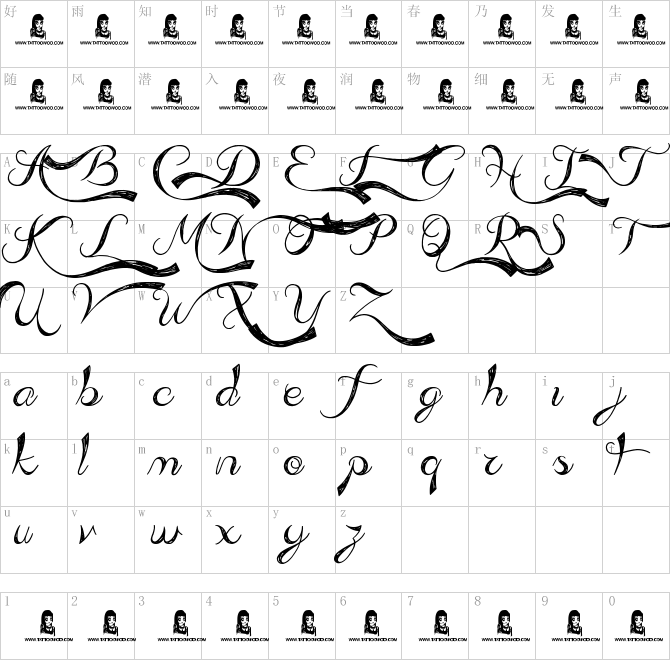 好 雨 知 时 节 当 春 乃 发 生
WWW.TATTOOWOO.COM WWW.TATTOOWOO.COM WWW.TATTOOWOO.COM WWW.TATTOOWOO.COM WWW.TATTOOWOO.COM WWW.TATTOOWOO.COM WWW.TATTOOWOO.COM WWW.TATTOOWOO.COM WWW.TATTOOWOO.COM WWW.TATTOOWOO.COM
随 风 潜 入 夜 润 物 细 无 声
WWW.TATTOOWOO.COM WWW.TATTOOWOO.COM WWW.TATTOOWOO.COM WWW.TATTOOWOO.COM WWW.TATTOOWOO.COM WWW.TATTOOWOO.COM WWW.TATTOOWOO.COM WWW.TATTOOWOO.COM WWW.TATTOOWOO.COM WWW.TATTOOWOO.COM
A B C D E F G H I J
A B C D E F G H I J
K L M N O P Q R S T
K L M N O P Q R S T
U V W X Y Z
U V W X Y Z
a b c d e f g h i j
a b c d e f g h i j
k l m n o p q r s t
k l m n o p q r s t
u v w x y z
u v w x y z
1 2 3 4 5 6 7 8 9 0
WWW.TATTOOWOO.COM WWW.TATTOOWOO.COM WWW.TATTOOWOO.COM WWW.TATTOOWOO.COM WWW.TATTOOWOO.COM WWW.TATTOOWOO.COM WWW.TATTOOWOO.COM WWW.TATTOOWOO.COM WWW.TATTOOWOO.COM WWW.TATTOOWOO.COM